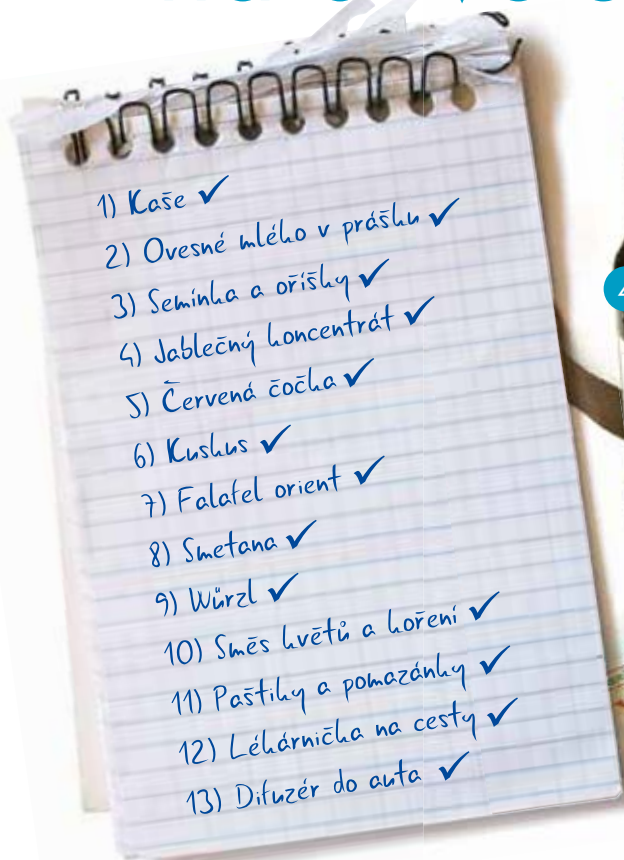 1) Kaše ✓
2) Ovesné mléko v prášku ✓
3) Semínka a oříšky ✓
4) Jablečný koncentrát ✓
5) Červená čočka ✓
6) Kuskus ✓
7) Falafel orient ✓
8) Smetana ✓
9) Würzl ✓
10) Směs květů a koření ✓
11) Paštiky a pomazánky ✓
12) Lékárnička na cesty ✓
13) Difuzér do auta ✓